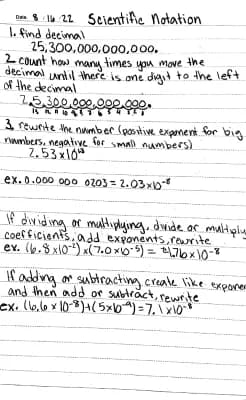 Date 8/16/22 Scientific Notation
1. find decimal
25,300,000,000,000.
2. count how many times you move the
decimal until there is one digit to the left
of the decimal
2,5,300,000,000,000.
3. rewrite the number (positive exponent for big
numbers, negative for small numbers)
2.53x10¹³
ex. 0.000 000 0203 = 2.03x10⁻⁸
if dividing or multiplying, divide or multiply
coefficients, add exponents, rewrite
ex. (6.8x10⁻²)x(7.0x10⁻⁵) = 4.76x10⁻⁸
If adding or subtracting, create like exponen
and then add or subtract, rewrite
ex. (6.6x10⁻⁸)+(5x10⁻⁹)=7.1x10⁻⁸